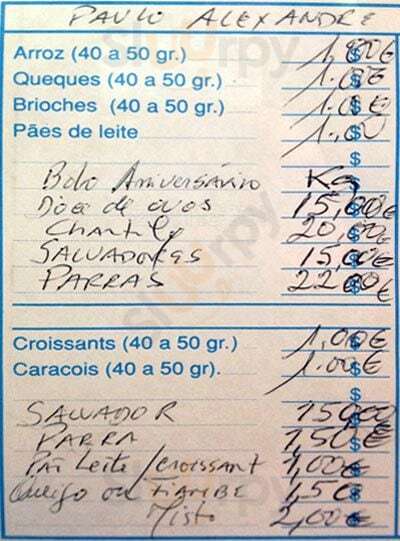 PAULO ALEXANDRE
Arroz (40 a 50 gr.) 1,00€
Queques (40 a 50 gr.) 1.00€
Brioches (40 a 50 gr.) 1.00€
Pães de leite 1.00
$
Bolo Aniversário Kg
Doce de ovos 15,00€
Chantily 20,00€
SALVADORES 15,00€
PARRAS 22,00€
Croissants (40 a 50 gr.) 1,00€
Caracois (40 a 50 gr). 1.00€
$
SALVADOR 1500
PARRA 1,50€
Pão Leite / CROISSANT 1,00€
Queijo ou FIAMBRE 1,50
Misto 2,00€